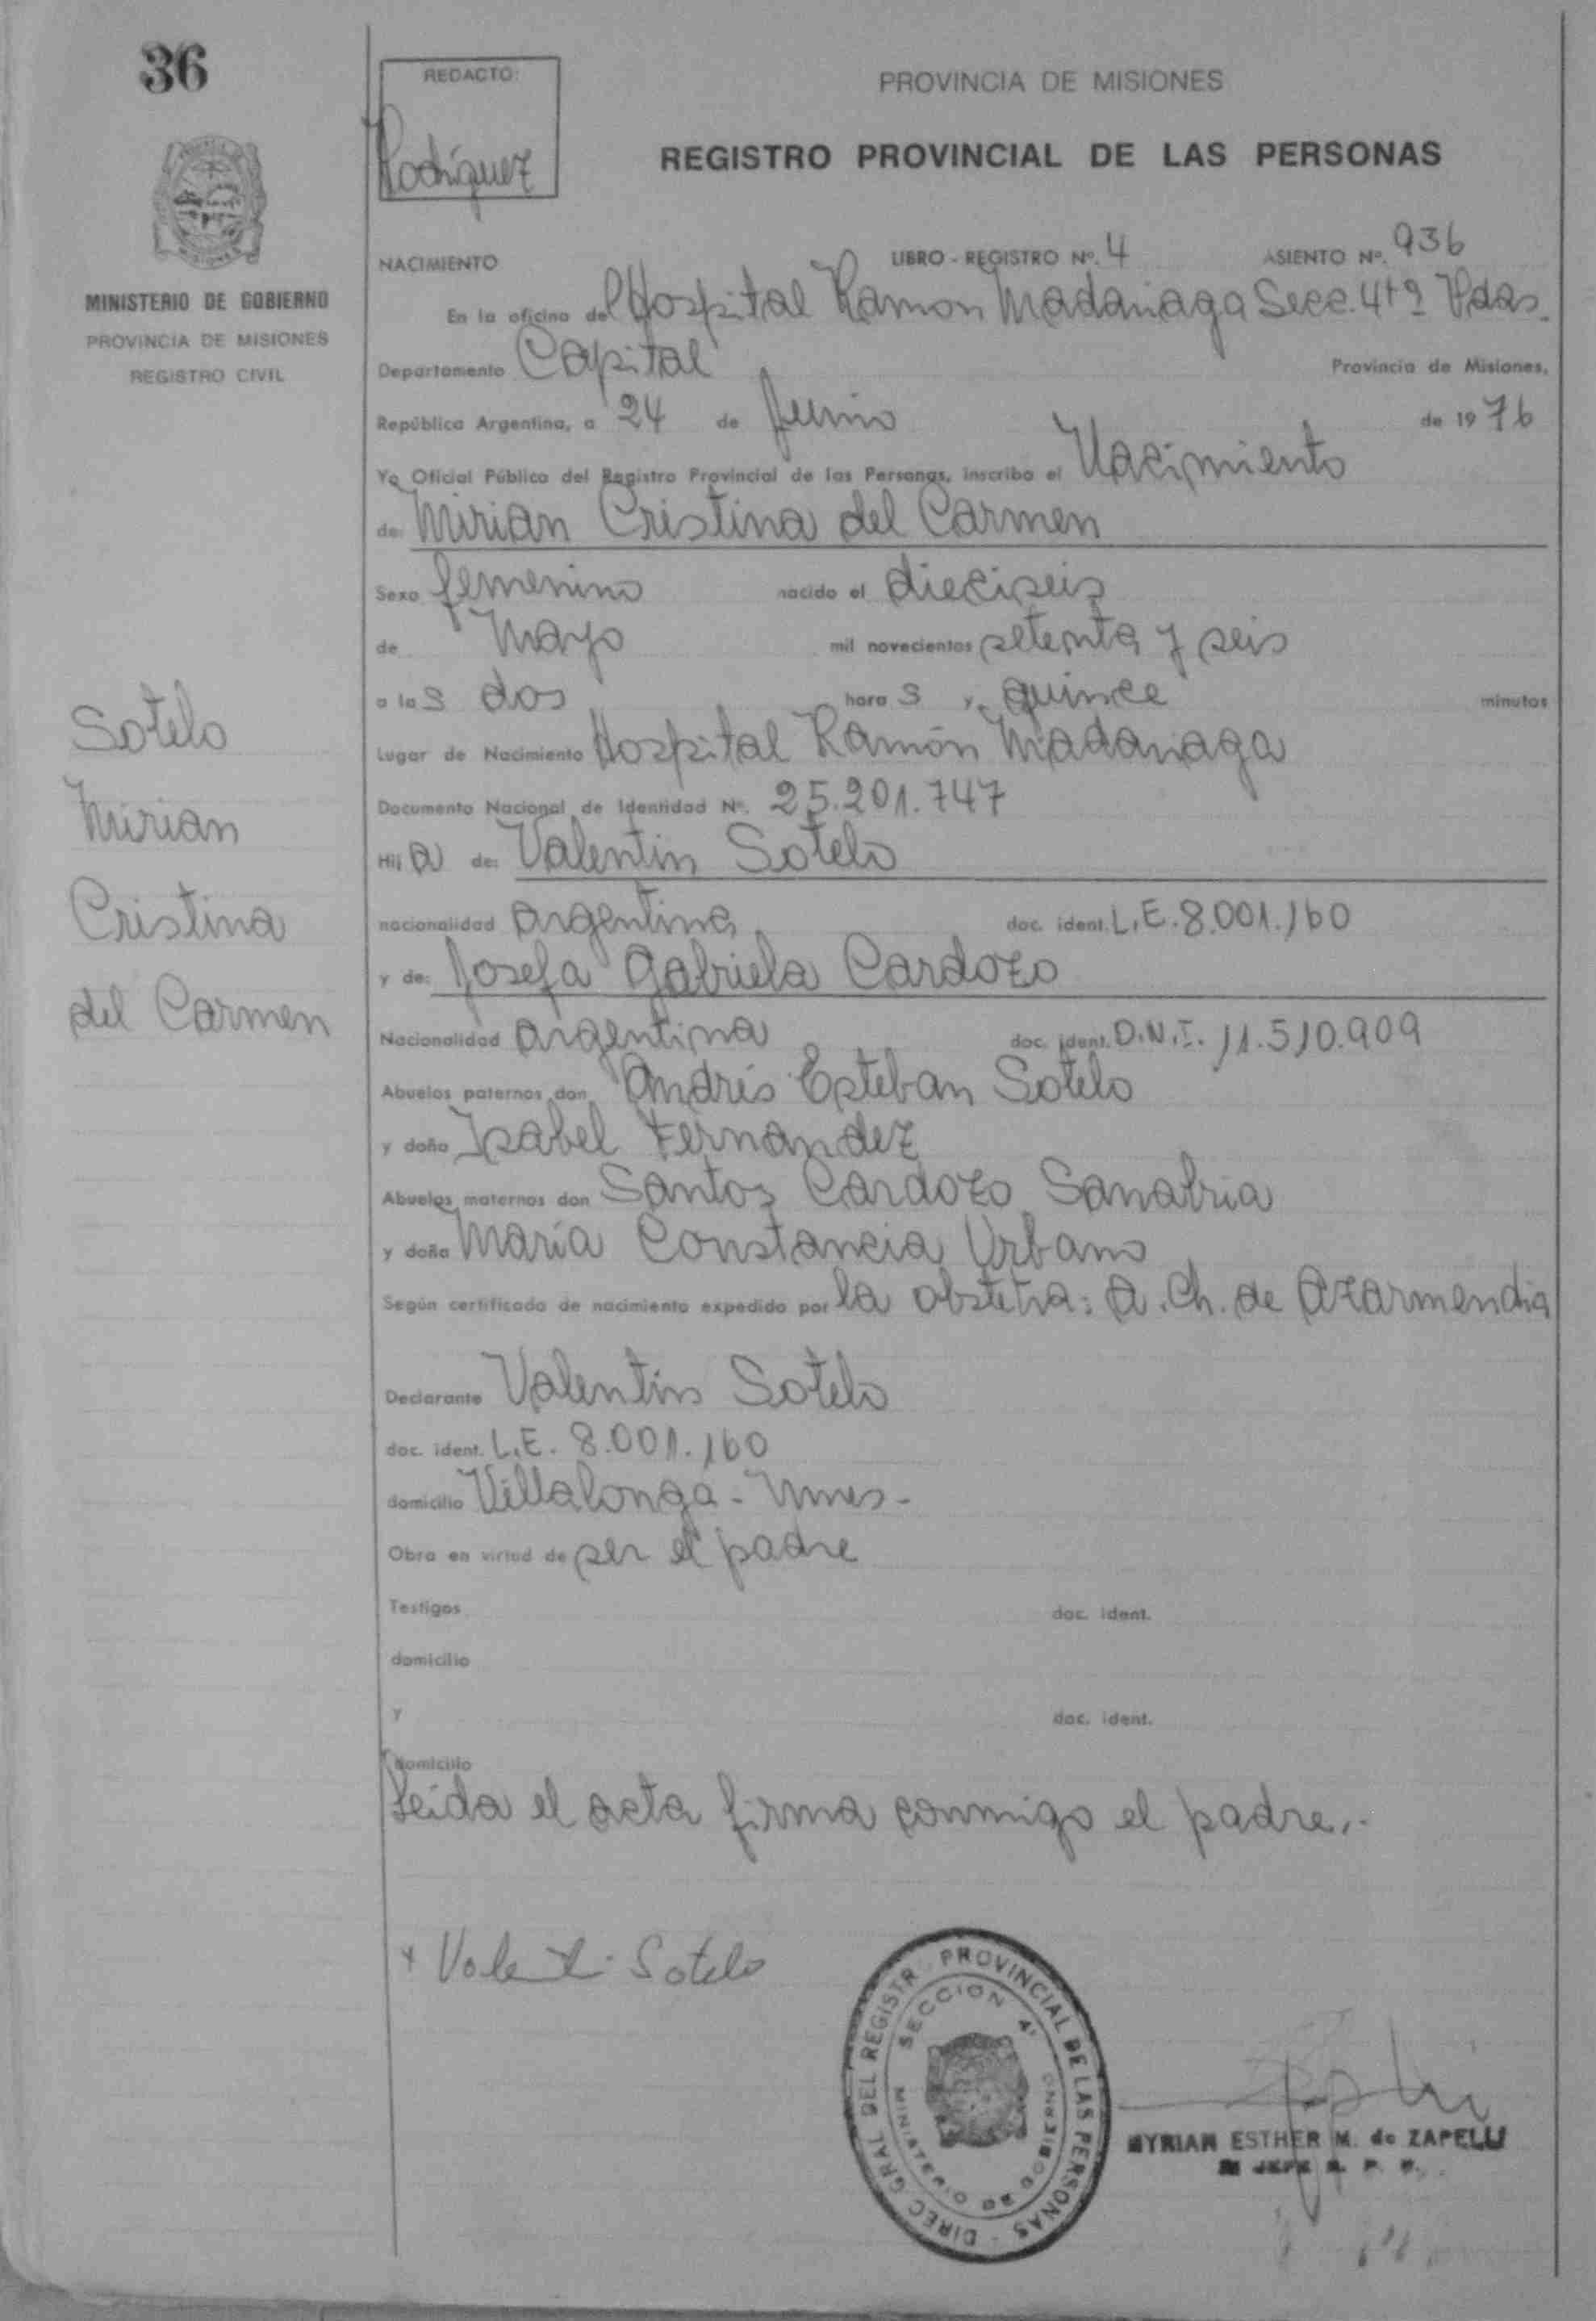 36
REDACTO:
Rodríguez
PROVINCIA DE MISIONES
REGISTRO PROVINCIAL DE LAS PERSONAS
MINISTERIO DE GOBIERNO
PROVINCIA DE MISIONES
REGISTRO CIVIL
NACIMIENTO LIBRO - REGISTRO Nº. 4 ASIENTO Nº. 936
En la oficina del Hospital Ramón Madariaga Secc. 4tª Pdas.
Departamento Capital Provincia de Misiones,
República Argentina, a 24 de Junio de 1976
Yo Oficial Público del Registro Provincial de las Personas, inscribo el Nacimiento
de: Mirian Cristina del Carmen
Sexo femenino nacido el dieciseis
de Mayo mil novecientos setenta y seis
a las dos horas y quince minutos
Lugar de Nacimiento Hospital Ramón Madariaga
Documento Nacional de Identidad Nº. 25.201.747
Hija de: Valentin Sotelo
nacionalidad argentina doc. ident. L.E. 8.001.160
y de: Josefa Gabriela Cardozo
Nacionalidad argentina doc. ident. D.N.I. 11.510.909
Abuelos paternos don Andrés Esteban Sotelo
y doña Isabel Fernandez
Abuelos maternos don Santos Cardozo Sanabria
y doña María Constancia Urbano
Según certificado de nacimiento expedido por la obstetra: A. Ch. de Azarmendia
Declarante Valentin Sotelo
doc. ident. L.E. 8.001.160
domicilio Villalonga -
Obra en virtud de ser el padre
Testigos doc. ident.
domicilio
y doc. ident.
domicilio
Leida el acta firma conmigo el padre.-
Sotelo
Mirian
Cristina
del Carmen
x Valenti Sotelo
DIREC. GRAL. DEL REGISTR. PROVINCIAL DE LAS PERSONAS
SECCION 4ª
MINISTERIO DE GOBIERNO
MYRIAN ESTHER M. de ZAPELLI
JEFE R. P. P.